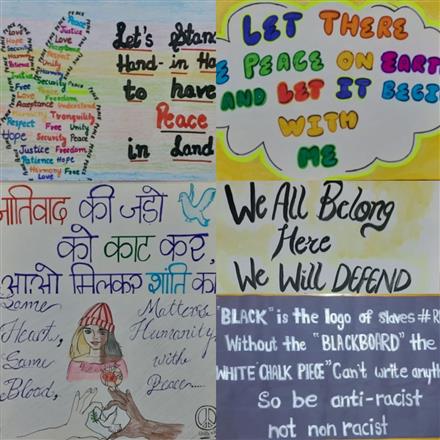 Peace
Justice
Love
Love
Hope
Acceptance
Security
Respect
Harmony
Unity
Patience
Hope
Justice
Free
Unity
Love
Peace
Freedom
Acceptance
Understand
Harmony
Tranquility
Respect
Free
Unity
Hope
Security
Peace
Justice
Freedom
Patience
Hope
Harmony
Free
Love
Let's Stan
Hand-in Ha
to have
Peace
in Land
LET THERE
E PEACE ON EARTH
AND LET IT BEGI
WITH
ME
जातिवाद की जड़ो
को काट कर,
आओ मिलकर शांति का
Same
Heart,
Same
Blood,
Matters
Humanity
with
Peace....
We All Belong
Here
We Will DEFEND
"BLACK" is the logo of slaves #R
Without the "BLACKBOARD" the
WHITE CHALK PIECE" Can't write anyth
So be anti-racist
not non racist